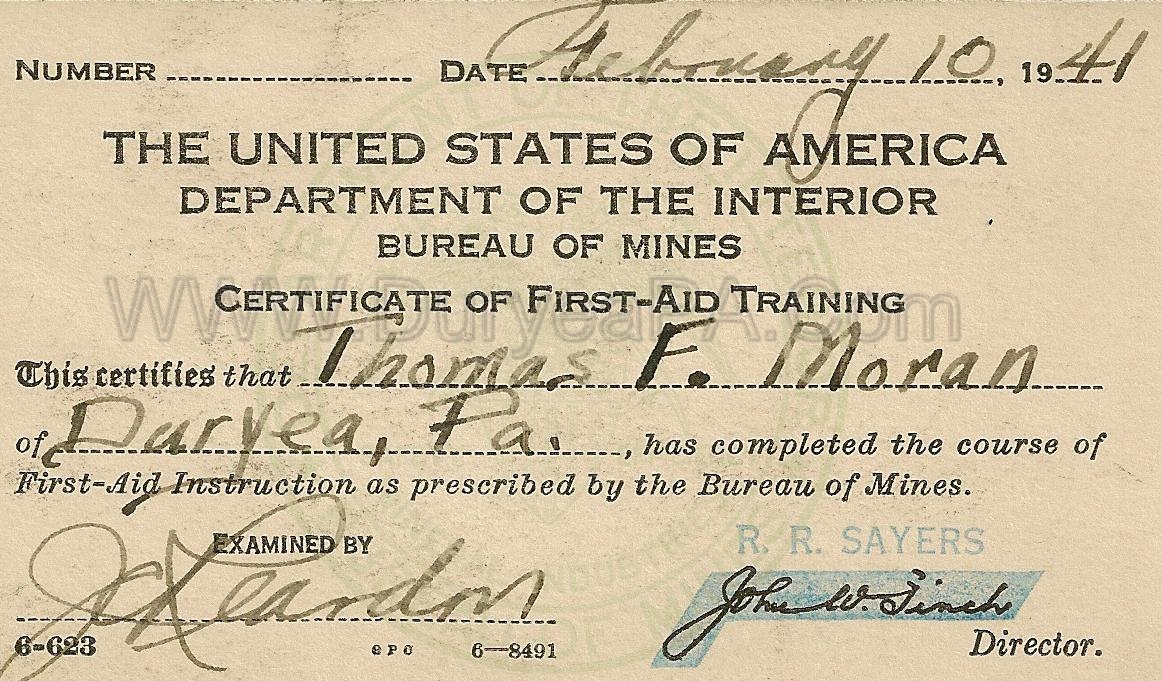 NUMBER DATE February 10, 1941
THE UNITED STATES OF AMERICA
DEPARTMENT OF THE INTERIOR
BUREAU OF MINES
WWW.DuryeaPA.Com
CERTIFICATE OF FIRST-AID TRAINING
This certifies that Thomas F. Moran
of Duryea, Pa., has completed the course of
First-Aid Instruction as prescribed by the Bureau of Mines.
EXAMINED BY
R. R. SAYERS
John W. Finch
6-623 GPO 6—8491 Director.